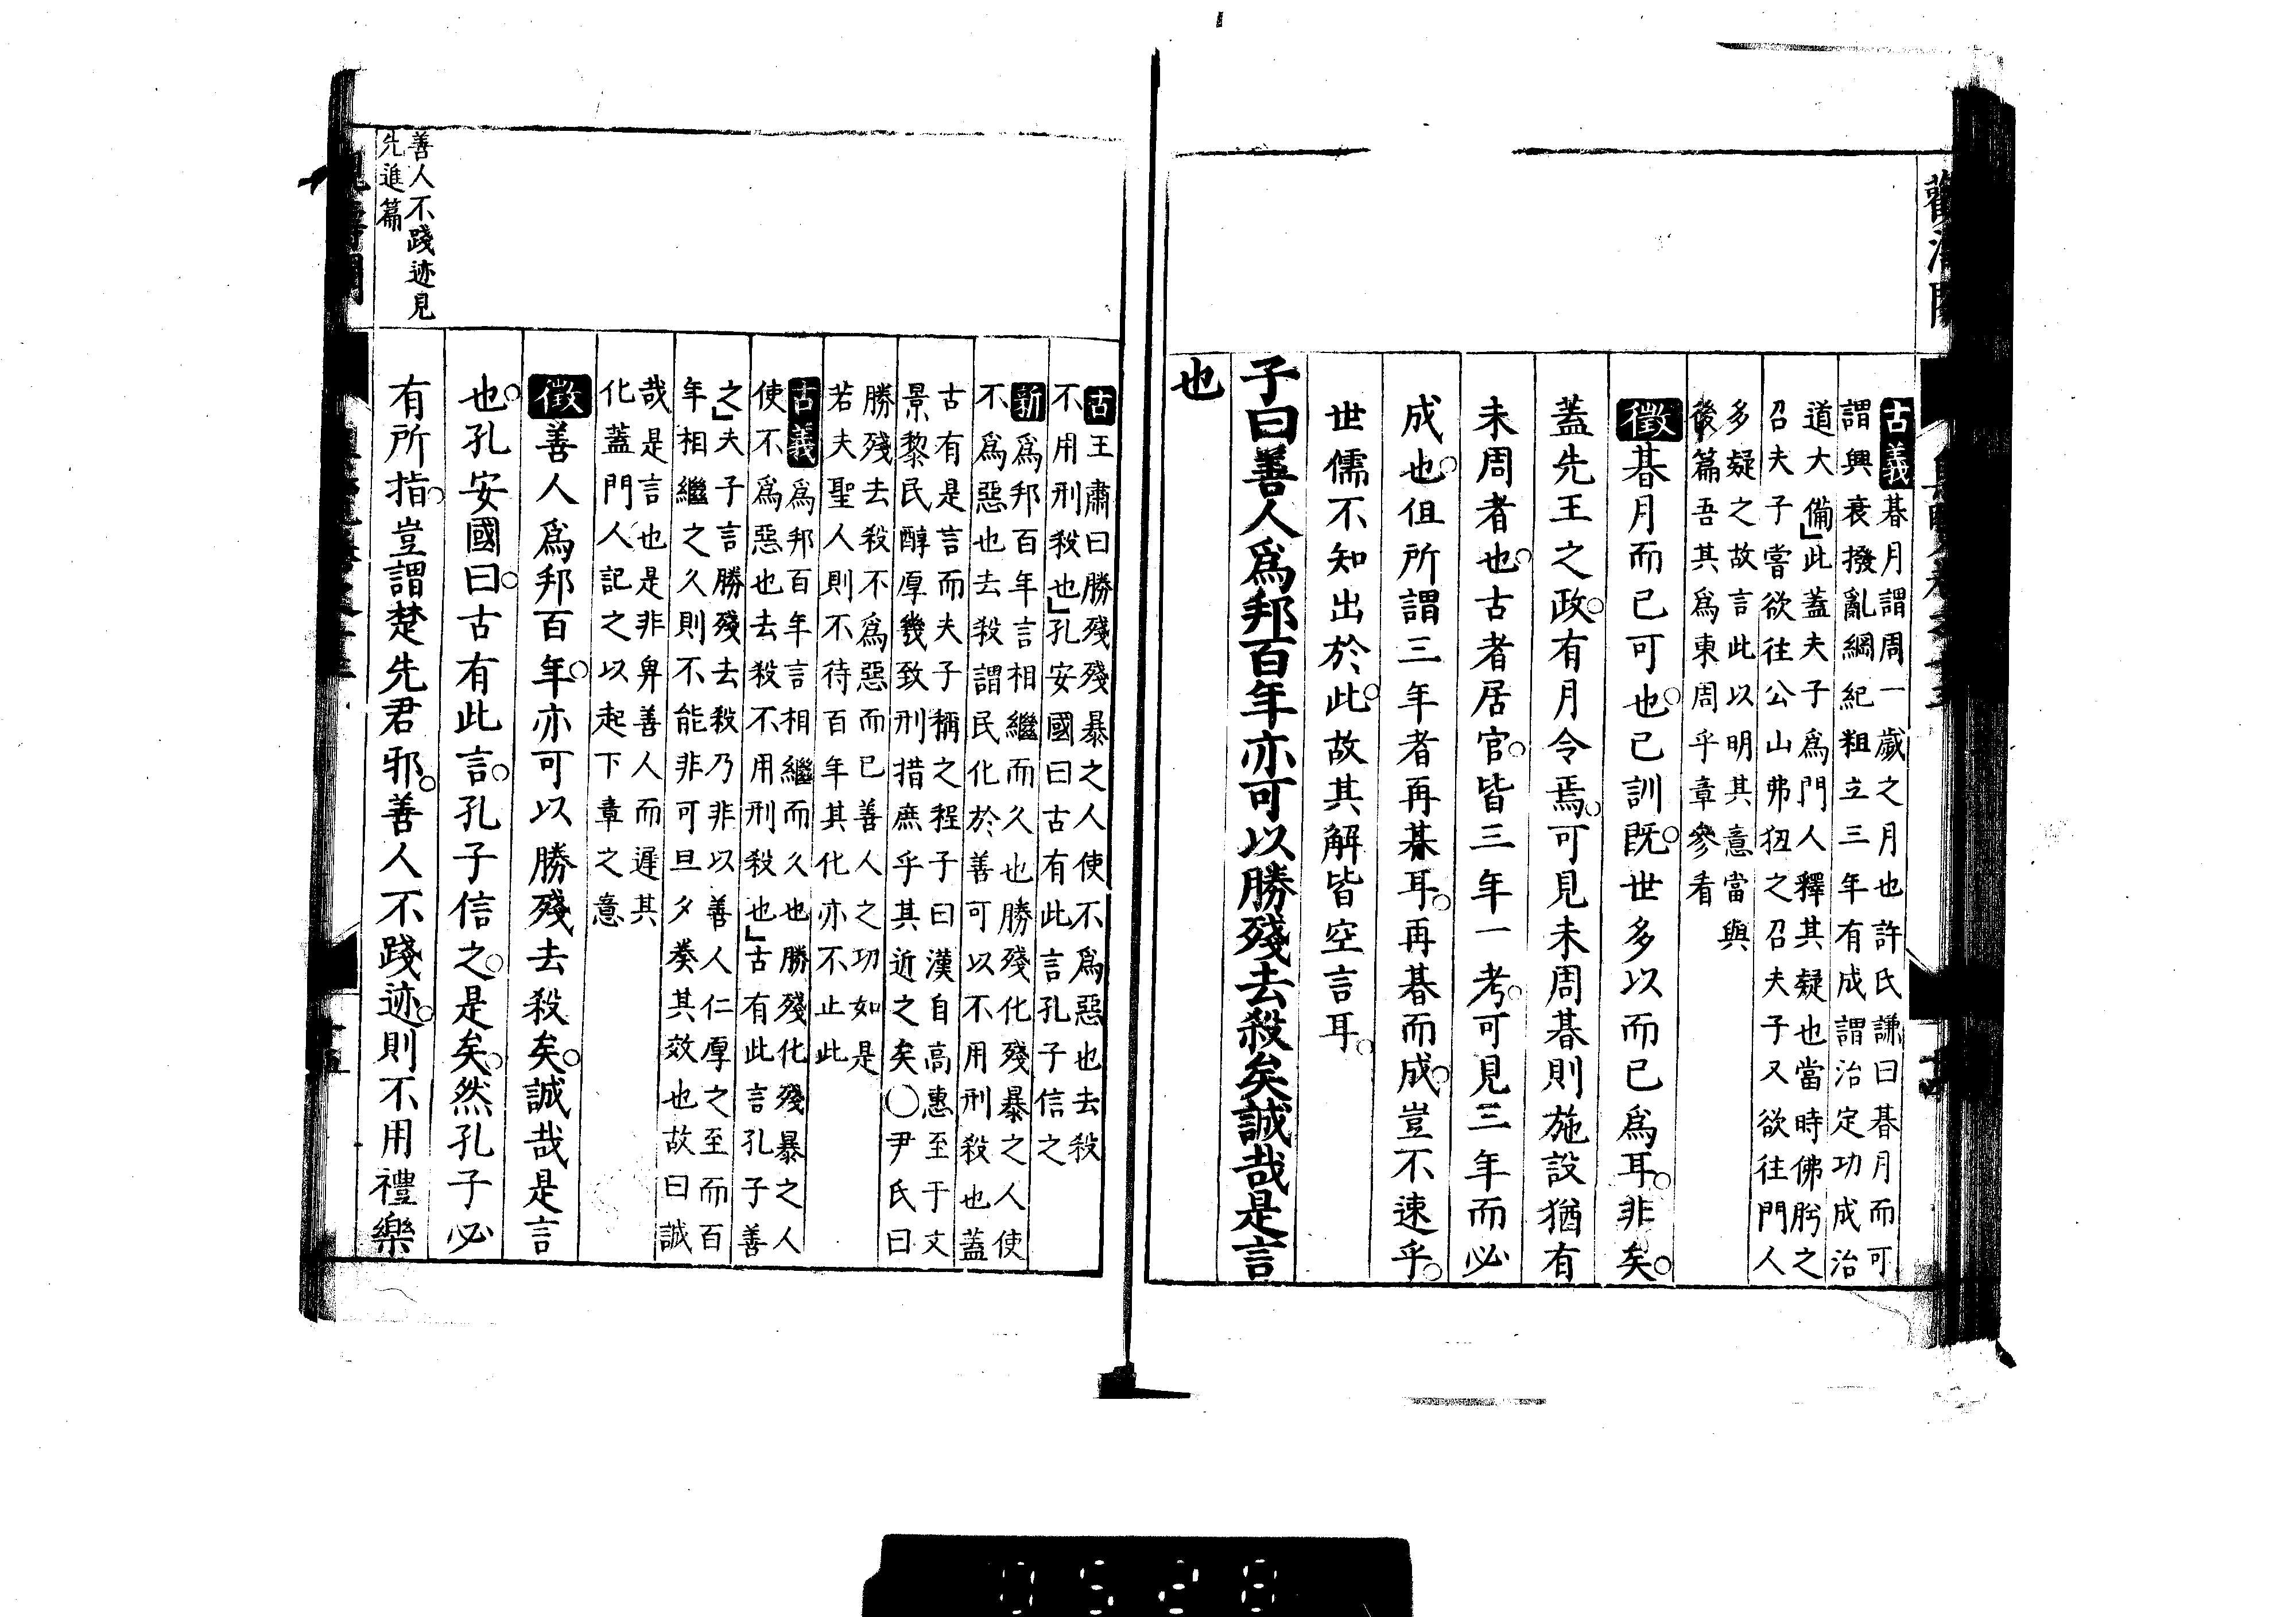 古義朞月謂周一歲之月也許氏謙曰朞月而可
謂興衰撥亂綱紀粗立三年有成謂治定功成治
道大備」此蓋夫子爲門人釋其疑也當時佛肹之
召夫子嘗欲往公山弗狃之召夫子又欲往門人
多疑之故言此以明其意當與
後篇吾其爲東周乎章參看
徵朞月而已可也○已訓既○世多以而已爲耳○非矣○
蓋先王之政○有月令焉○可見未周朞則施設猶有
未周者也○古者居官○皆三年一考○可見三年而必
成也○但所謂三年者再朞耳○再朞而成○豈不速乎○
世儒不知出於此○故其解皆空言耳○
子曰善人爲邦百年亦可以勝殘去殺矣誠哉是言
也
古王肅曰勝殘殘暴之人使不爲惡也去殺
不用刑殺也」孔安國曰古有此言孔子信之
新爲邦百年言相繼而久也勝殘化殘暴之人使
不爲惡也去殺謂民化於善可以不用刑殺也蓋
古有是言而夫子稱之程子曰漢自高惠至于文
景黎民醇厚幾致刑措庶乎其近之矣○尹氏曰
勝殘去殺不爲惡而已善人之功如是
若夫聖人則不待百年其化亦不止此
古義爲邦百年言相繼而久也勝殘化殘暴之人
使不爲惡也去殺不用刑殺也」古有此言孔子善
之」夫子言勝殘去殺乃非以善人仁厚之至而百
年相繼之久則不能非可旦夕奏其效也故曰誠
哉是言也是非舁善人而遲其
化蓋門人記之以起下章之意
徵善人爲邦百年○亦可以勝殘去殺矣○誠哉是言
也○孔安國曰○古有此言○孔子信之○是矣○然孔子必
善人不踐迹見
先進篇
有所指○豈謂楚先君邪○善人不踐迹○則不用禮樂
0528